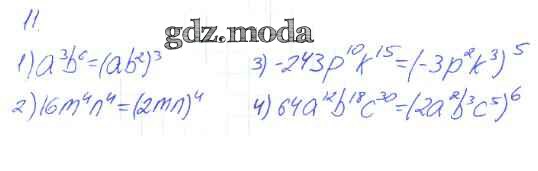 11.
gdz.moda
1) a³b⁶=(ab²)³
2) 16m⁴n⁴=(2mn)⁴
3) -243p¹⁰k¹⁵=(-3p²k³)⁵
4) 64a¹²b¹⁸c³⁰=(2a²b³c⁵)⁶